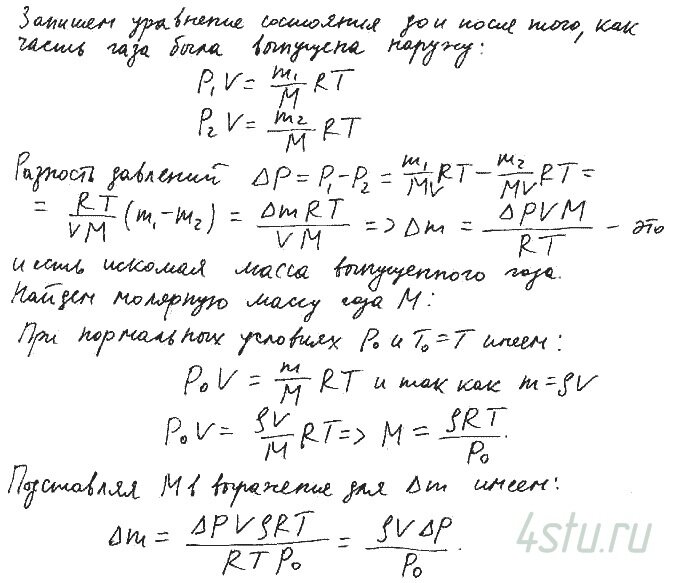 Запишем уравнение состояния до и после того, как
часть газа была выпущена наружу:
P₁V = m₁/M RT
P₂V = m₂/M RT
Разность давлений ΔP = P₁ - P₂ = m₁/MV RT - m₂/MV RT =
= RT/VM (m₁ - m₂) = ΔmRT/VM => Δm = ΔPVM/RT - это
и есть искомая масса выпущенного газа.
Найдем молярную массу газа M:
При нормальных условиях P₀ и T₀ = T имеем:
P₀V = m/M RT и так как m = ρV
P₀V = ρV/M RT => M = ρRT/P₀.
Подставляя M в выражение для Δm имеем:
Δm = ΔPVρRT/RTP₀ = ρVΔP/P₀.
4stu.ru